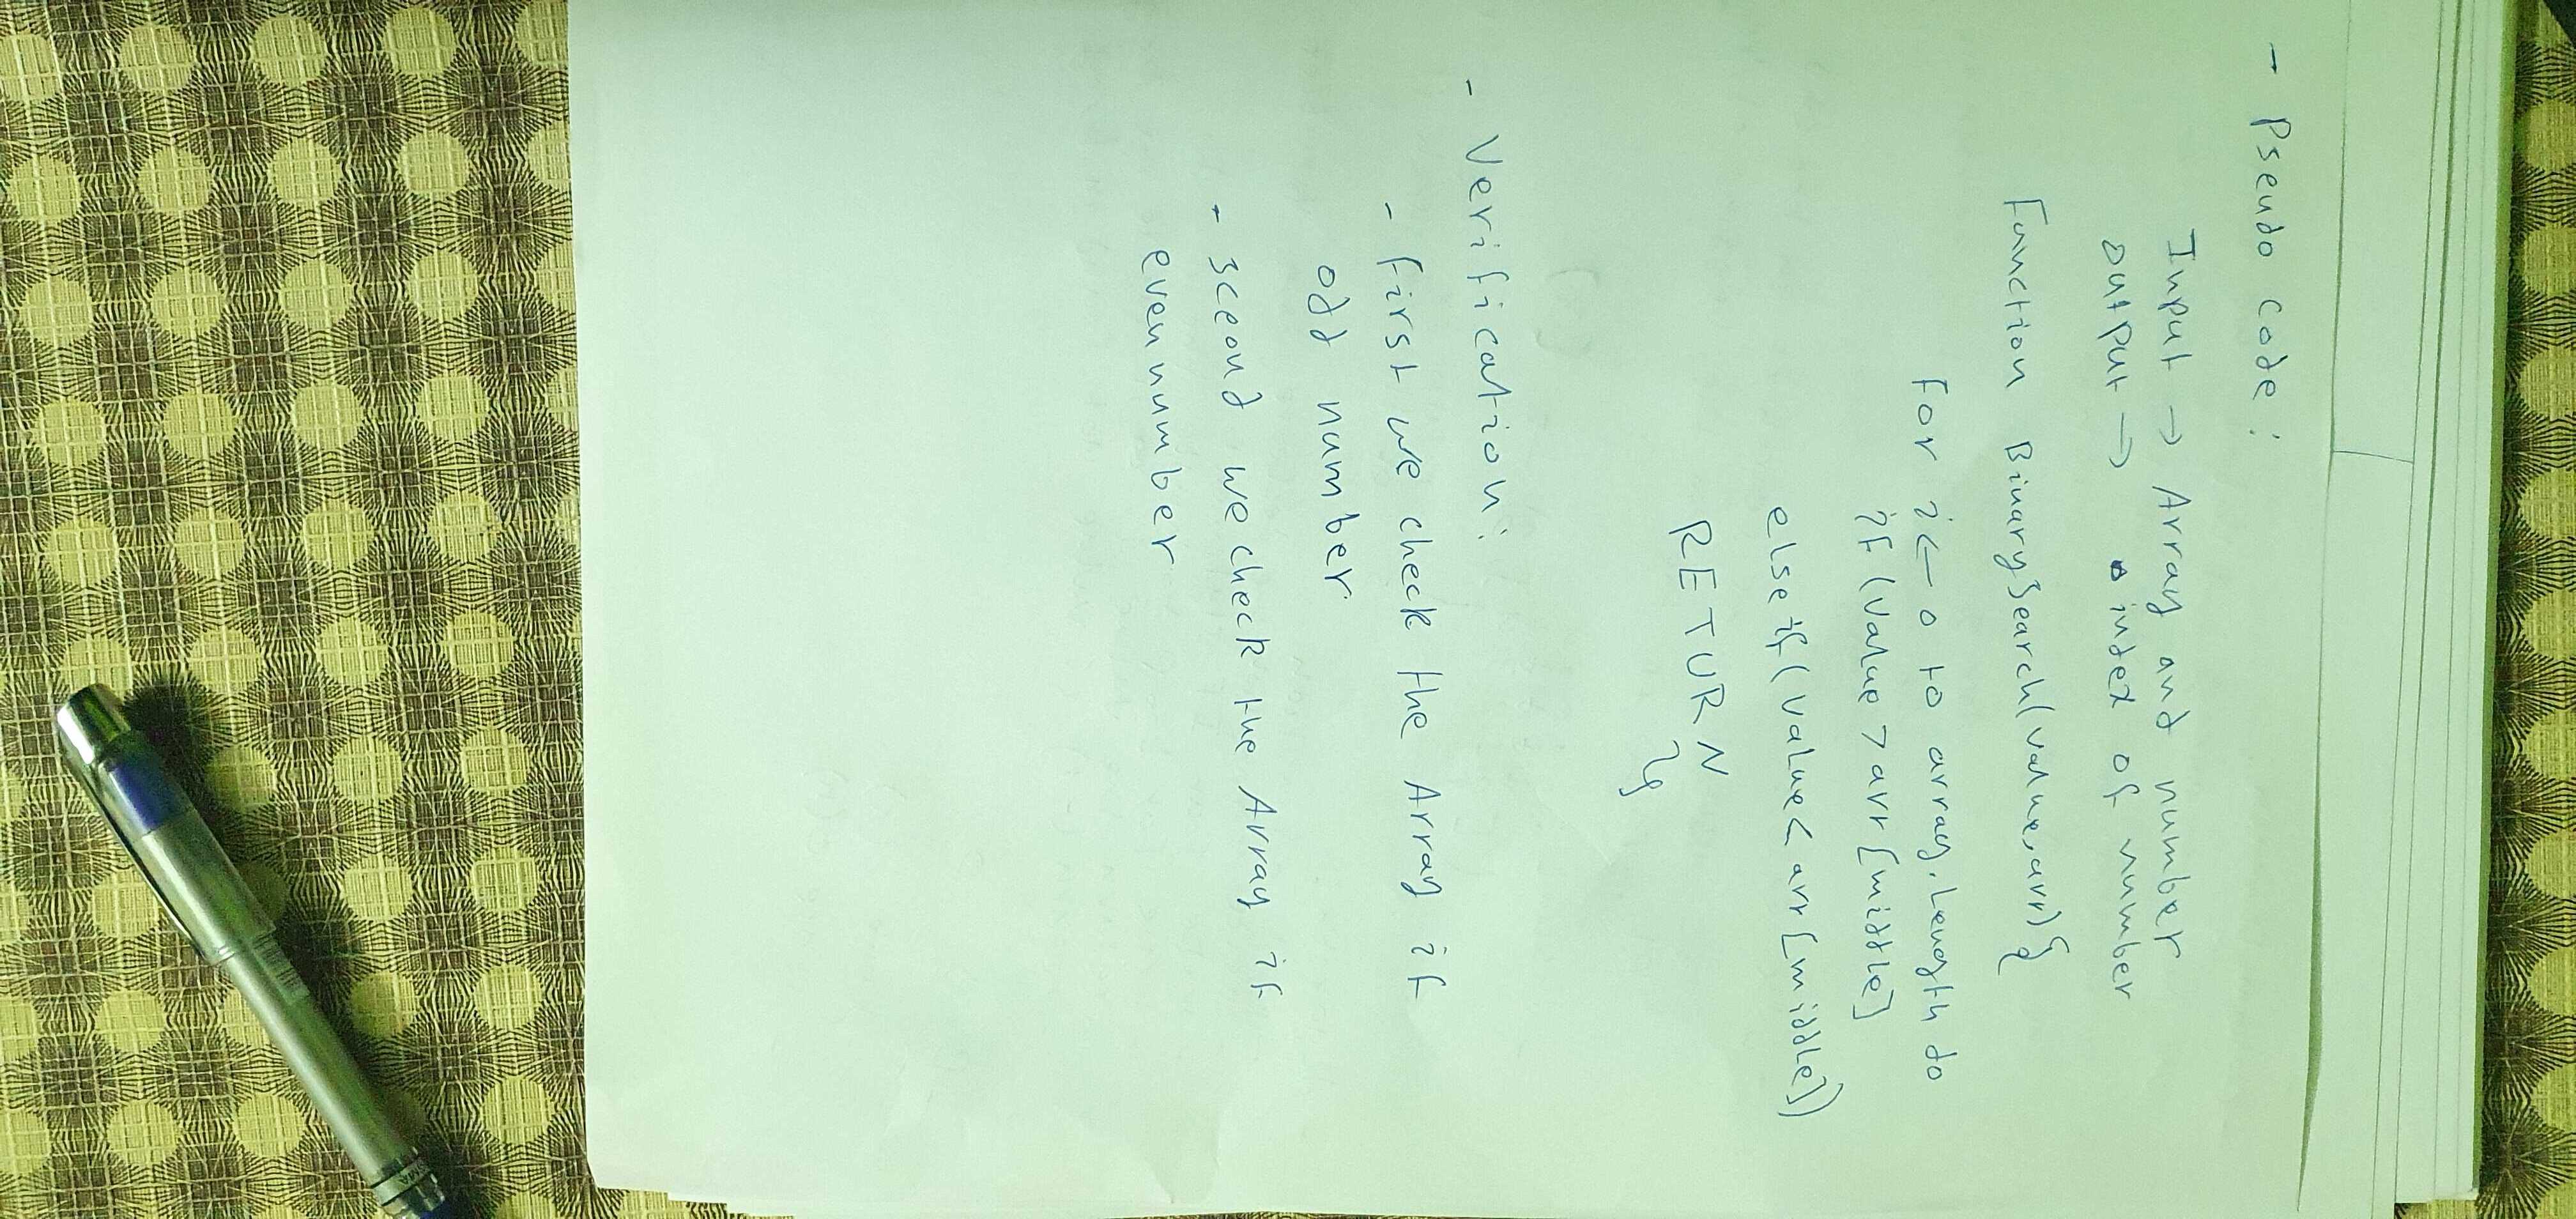 - Pseudo code:
Input → Array and number
output → index of number
Function BinarySearch(value,arr){
For i ← 0 to array.Length do
if (value > arr[middle]
else if (value < arr[middle])
RETURN
}
- Verification:
- first we check the Array if
odd number
- sceond we check the Array if
even number